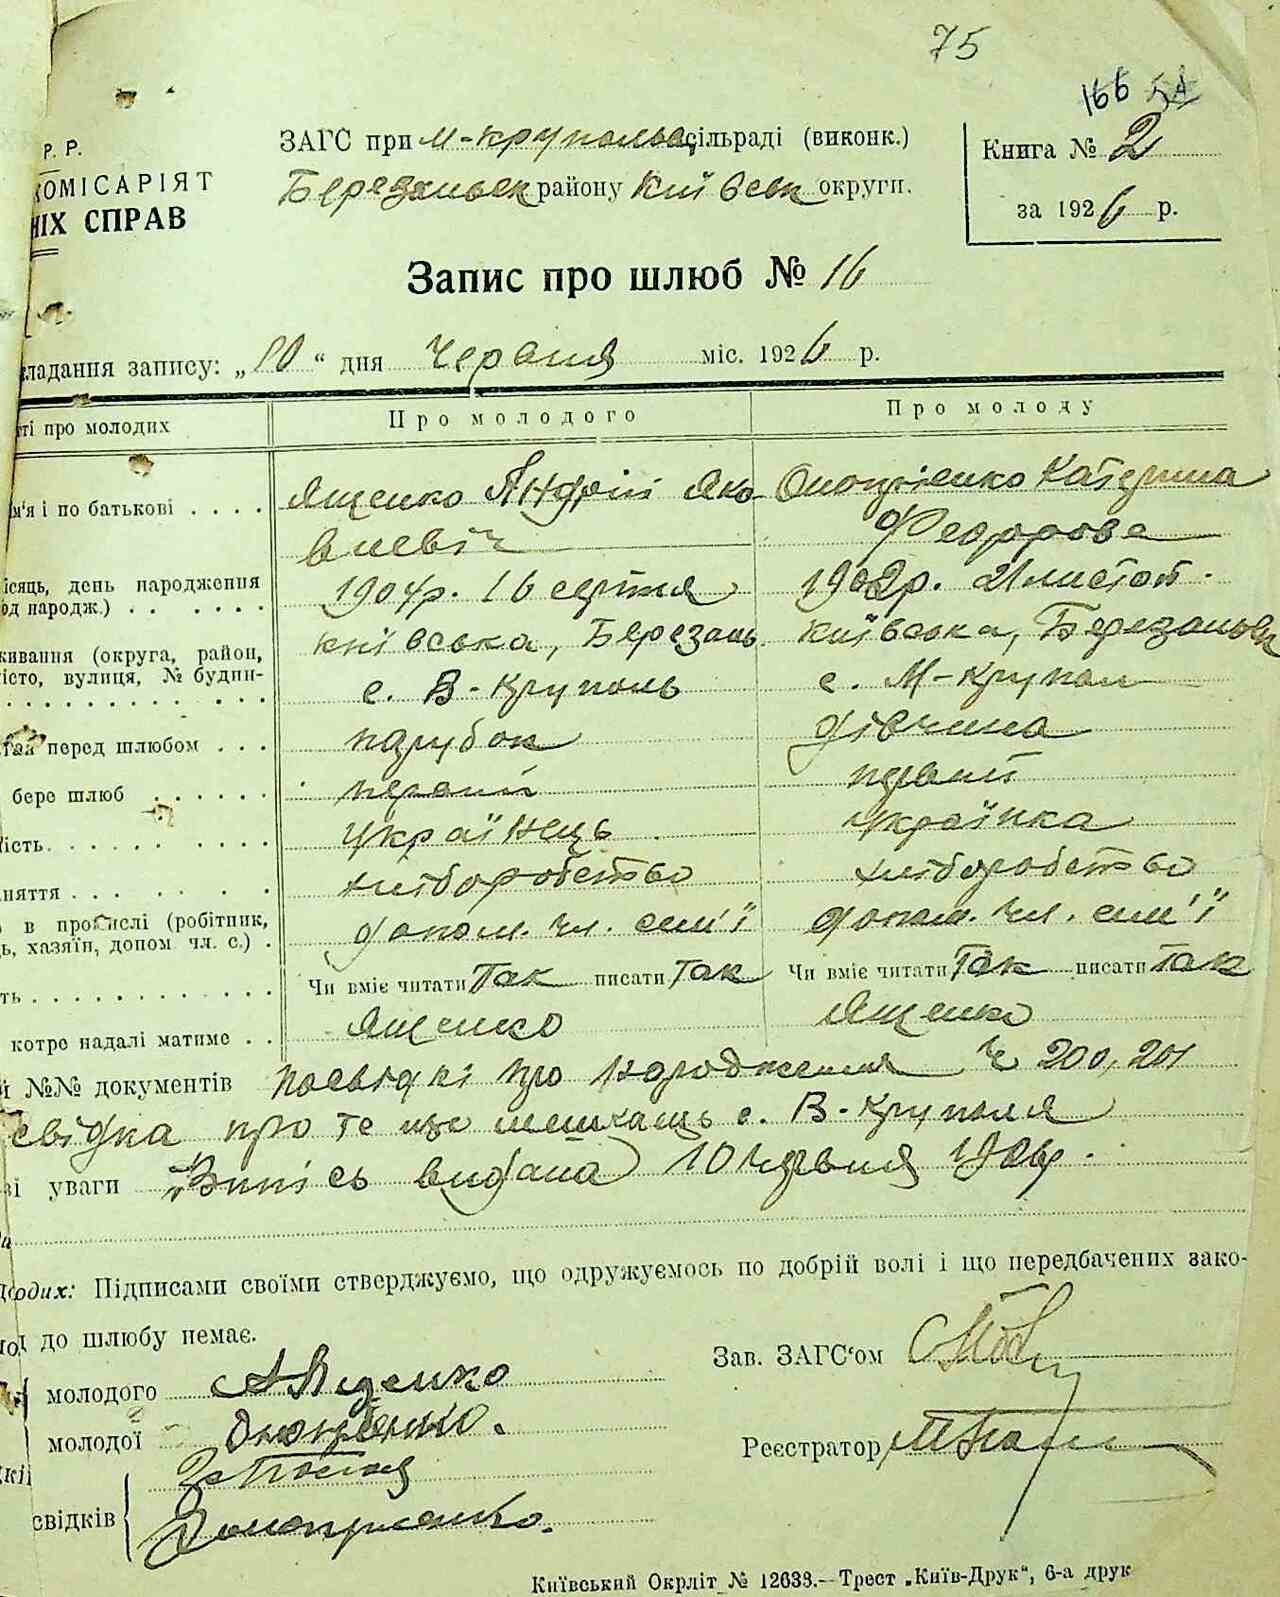 75
166 51
Р. Р.
КОМІСАРІЯТ
НІХ СПРАВ
ЗАГС при М-Крупольс. сільраді (виконк.)
Березанськ району Київськ округи.
Книга № 2
за 1926 р.
Запис про шлюб № 16
кладання запису: „10“ дня Червня міс. 1926 р.
ті про молодих
Про молодого
Про молоду
м'я і по батькові . . . .
Ященко Андрій Яко
влевіч
Онопрієнко Катерина
Федорова
ісяць, день народження
од народж.) . . . . . .
1904р. 16 серпня
1902р. 21 листоп.
живання (округа, район,
місто, вулиця, № будин-
київська, Березань.
с. В-Круполь
Київська, Березаньськ
с. М-Крупол
тан перед шлюбом . . .
парубок
дівчина
бере шлюб . . . . . .
перший
перший
ність . . . . . . . . .
українець
українка
няття . . . . . . .
хліборобство
хліборобство
в промислі (робітник,
ь, хазяїн, допом чл. с.) .
допом. чл. сем'ї
допом. чл. сем'ї
ть . . . . . . . . . . .
Чи вміє читати Так писати Так
Чи вміє читати Так писати Так
котре надалі матиме . .
Ященко
Ященко
й №№ документів посвідкі про народження ч 200, 201
свідка про те що мешкаць с. В-Круполя
ві уваги Випісь видана 10 червня 1926р.
дих: Підписами своїми стверджуємо, що одружуємось по добрій волі і що передбачених зако-
д до шлюбу немає.
Зав. ЗАГС'ом
молодого А Ященко
молодої Онопрієнко.
Реєстратор
свідків
Онопрієнко.
Київський Окрліт № 12633.—Трест „Київ-Друк“, 6-а друк